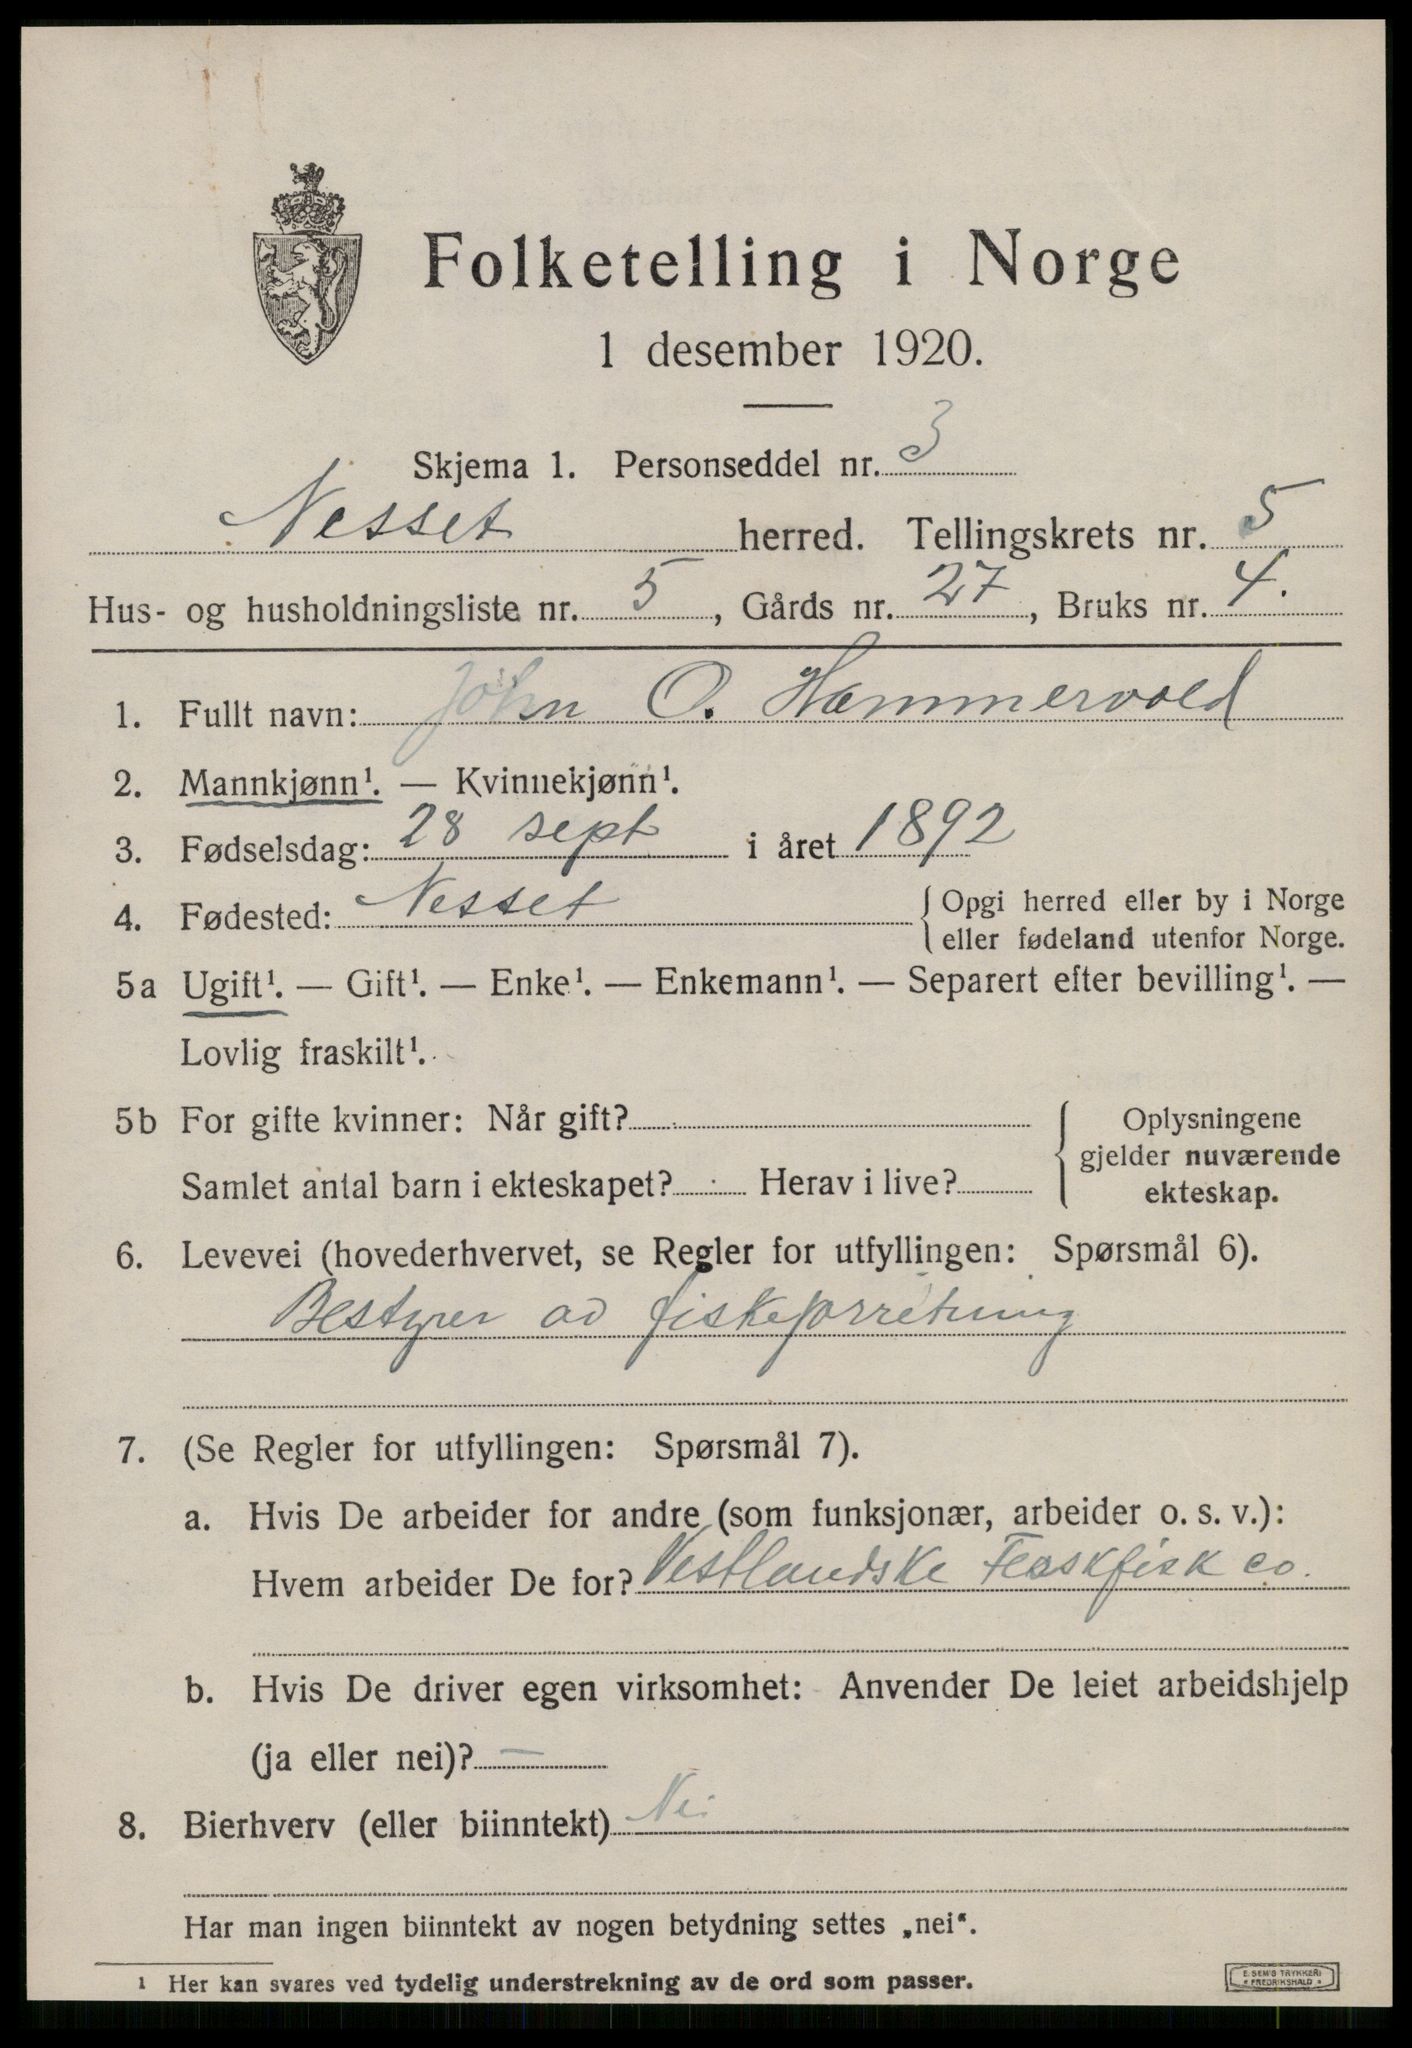 Folketelling i Norge
1 desember 1920.
Skjema 1. Personseddel nr. 3
Nesset herred. Tellingskrets nr. 5
Hus- og husholdningsliste nr. 5, Gårds nr. 27, Bruks nr. 4.
1. Fullt navn: John O. Hammervold
2. Mannkjønn¹. — Kvinnekjønn¹.
3. Fødselsdag: 28 sept i året 1892
4. Fødested: Nesset {Opgi herred eller by i Norge
eller fødeland utenfor Norge.
5a Ugift¹. — Gift¹. — Enke¹. — Enkemann¹. — Separert efter bevilling¹. —
Lovlig fraskilt¹.
5b For gifte kvinner: Når gift? { Oplysningene
gjelder nuværende
Samlet antal barn i ekteskapet? Herav i live? ekteskap.
6. Levevei (hovederhvervet, se Regler for utfyllingen: Spørsmål 6).
Bestyrer av fiskeforretning
7. (Se Regler for utfyllingen: Spørsmål 7).
a. Hvis De arbeider for andre (som funksjonær, arbeider o. s. v.):
Hvem arbeider De for? Vestlandske Feaskfisk co.
b. Hvis De driver egen virksomhet: Anvender De leiet arbeidshjelp
(ja eller nei)? —
8. Bierhverv (eller biinntekt) Nei
Har man ingen biinntekt av nogen betydning settes „nei“.
¹ Her kan svares ved tydelig understrekning av de ord som passer.
E. SEM'S TRYKKERI
FREDRIKSHALD